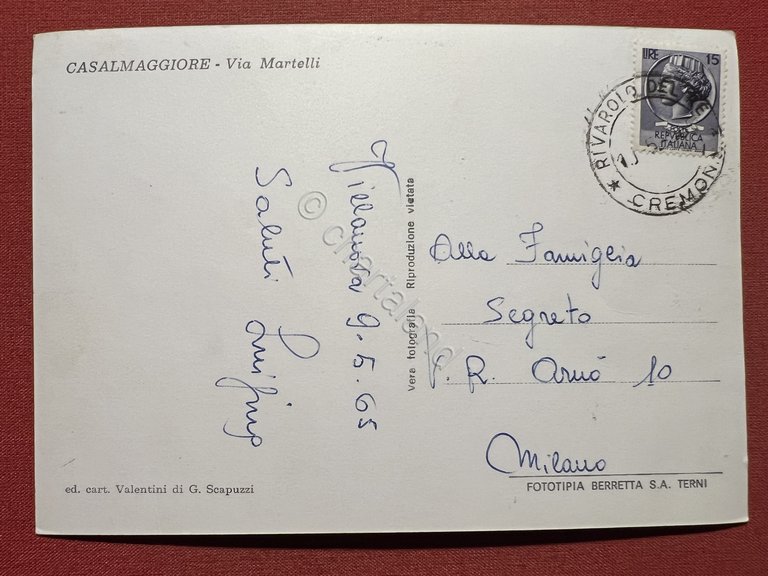 CASALMAGGIORE - Via Martelli
LIRE 15
REPVBBLICA
ITALIANA
RIVAROLO DEL RE
CREMONA
Villanova 9-5-65
Saluti
vera fotografia Riproduzione vietata
Alla Famiglia
Segreto
P. R. Arnò 10
Milano
ed. cart. Valentini di G. Scapuzzi
FOTOTIPIA BERRETTA S.A. TERNI
© chartaland